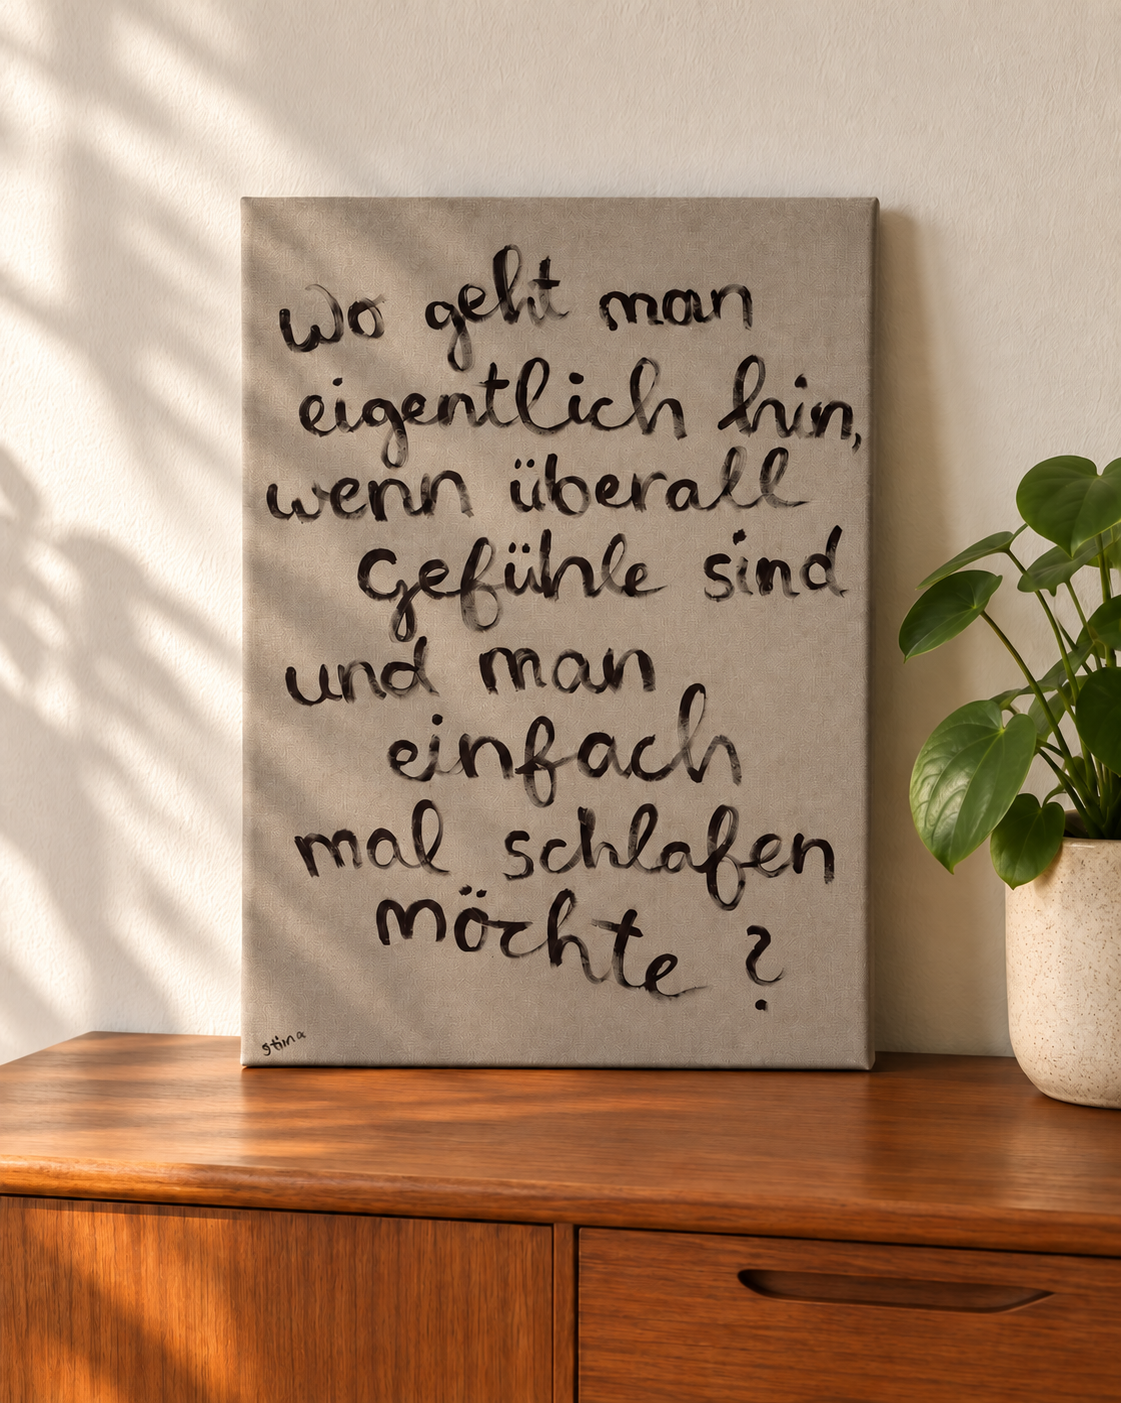 wo geht man
eigentlich hin,
wenn überall
Gefühle sind
und man
einfach
mal schlafen
möchte ?
stina